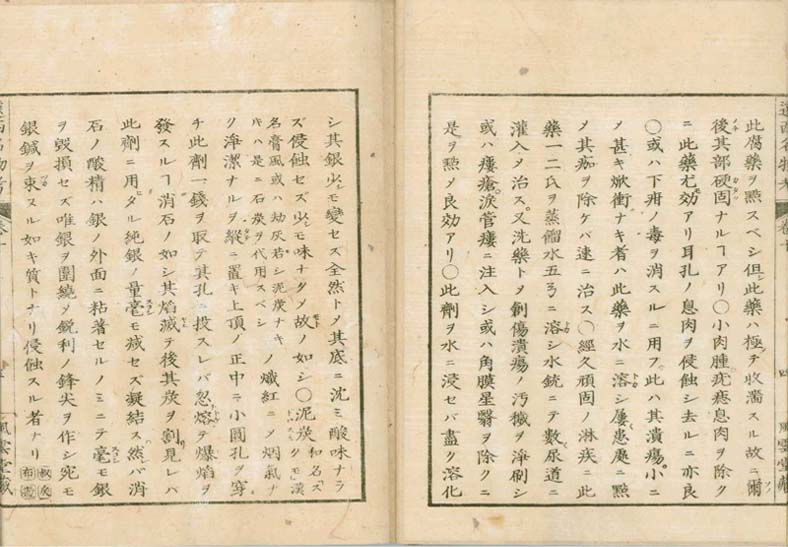 此腐藥ヲ㸃スベシ但シ此藥ハ極テ收濇スル故ニ爾
後其部硬固ナルヿアリ〇小肉腫疣痣息肉ヲ除ク
ニ此藥尤効アリ耳孔ノ息肉ヲ侵蝕シ去ルニ亦良
〇或ハ下疳ノ毒ヲ消スルニ用フ此ハ其潰瘍小ニ
メ甚キ焮衝ナキ者ハ此藥ヲ水ニ溶シ屢患處ニ㸃
メ其痂ヲ除ケバ速ニ治ス〇經久頑固ノ淋疾ニ此
藥一二氏ヲ蒸餾水五ニ溶シ水銃ニテ數尿道ニ
灌入メ治ス又洗藥トメ創傷潰瘍ノ汚穢ヲ淨刷シ
或ハ瘻瘡淚管瘻ニ注入シ或ハ角膜星翳ヲ除クニ
是ヲ㸃メ良効アリ〇此劑ヲ水ニ浸セバ盡ク溶化
シ其銀少モ變セズ全然トメ其底ニ沈ミ酸味ナラ
ズ侵蝕セズ少モ味ナクメ故ノ如シ〇泥炭 和名スクモ漢
名膏 或ハ劫灰若シ泥炭ナキキハ是ニ石炭ヲ代用スベシ ノ熾紅ニメ烟氣ナ
ク淨潔ナルヲ縱ニ置キ上頂ノ正中ニ小圓孔ヲ穿
チ此劑一錢ヲ取テ其孔ニ投スレバ忽熔テ爆焰ヲ
發スルヿ消石ノ如シ其焰滅テ後其炭ヲ割見レバ
此劑ニ用タル純銀ノ量毫モ減セズ凝結ス然バ消
石ノ酸精ハ銀ノ外面ニ粘著セルノミニテ毫モ銀
ヲ毀損セズ唯銀ヲ圍繞メ鋭利ノ鋒尖ヲ作シ宛モ
銀鍼ヲ束スル如キ質トナリ侵蝕スル者ナリ
遠西名物考
卷十
四
風雲堂藏